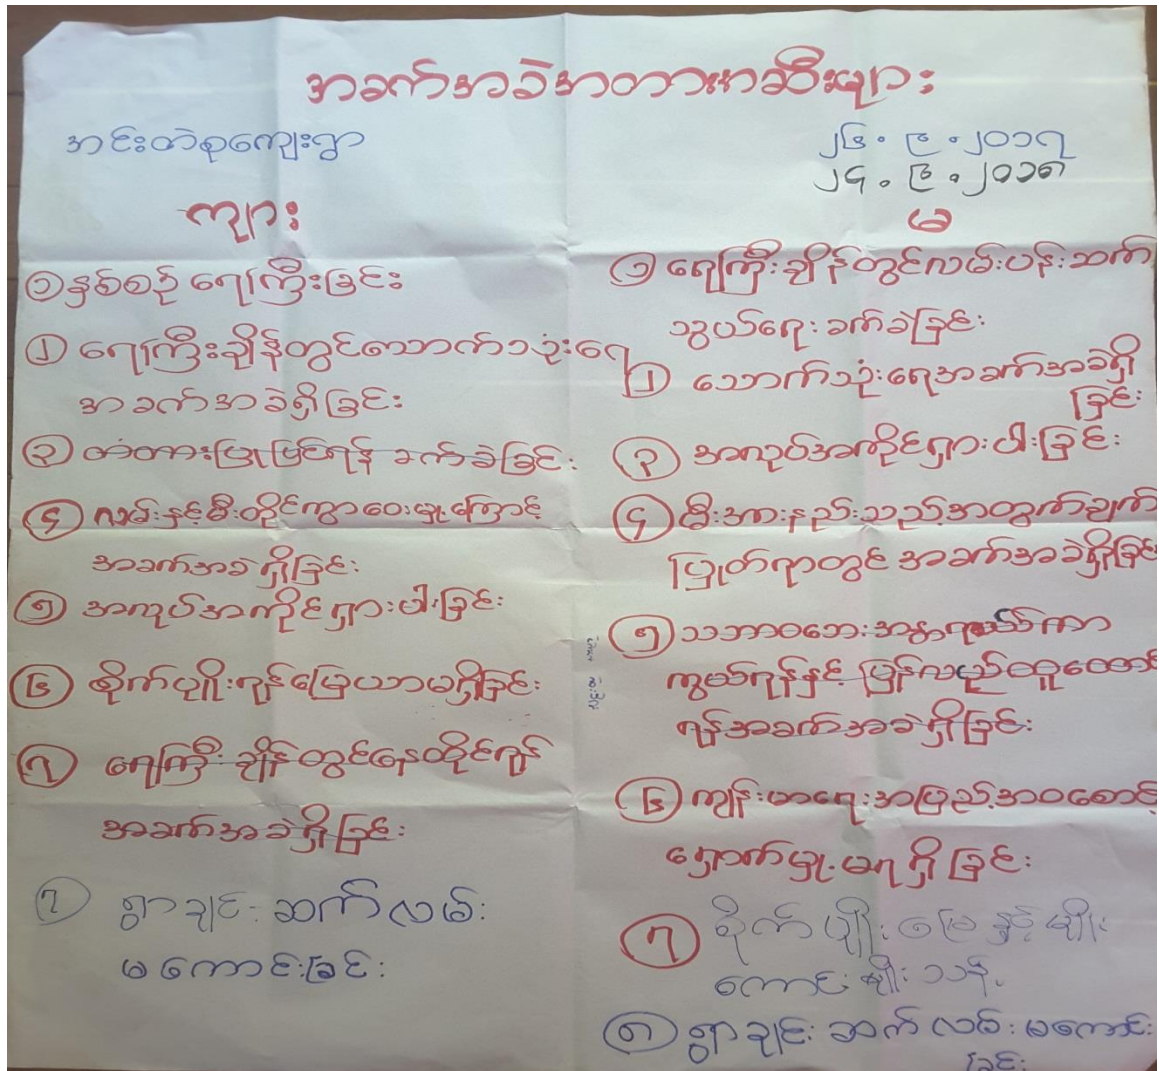 အခက်အခဲအတားအဆီးများ
အင်းတဲစုကျေးရွာ
၂၆.၉.၂၀၁၇
၂၄.၉.၂၀၁၈
ကျား
၁ နှစ်စဉ် ရေကြီးခြင်း
၂ ရေကြီးချိန်တွင်သောက်သုံးရေ
အခက်အခဲရှိခြင်း
၃ တံတားပြုပြင်ရန် ခက်ခဲခြင်း
၄ လမ်းနှင့်မီးတိုင်ကွာဝေးမှုကြောင့်
အခက်အခဲရှိခြင်း
၅ အလုပ်အကိုင်ရှားပါးခြင်း
၆ စိုက်ပျိုးရန်မြေယာမရှိခြင်း
၇ ရေကြီးချိန်တွင်နေထိုင်ရန်
အခက်အခဲရှိခြင်း
၇ ရွာချင်းဆက်လမ်း
မကောင်းခြင်း
မ
၁ ရေကြီးချိန်တွင်လမ်းပန်းဆက်
သွယ်ရေးခက်ခဲခြင်း
၂ သောက်သုံးရေအခက်အခဲရှိ
ခြင်း
၃ အလုပ်အကိုင်ရှားပါးခြင်း
၄ မီးအားနည်းသည့်အတွက်ချက်
ပြုတ်ရာတွင် အခက်အခဲရှိခြင်း
၅ သဘာဝဘေးအန္တရာယ်ကာ
ကွယ်ရန်နှင့် ပြန်လည်ထူထောင်
ရန်အခက်အခဲရှိခြင်း
၆ ကျန်းမာရေးအပြည့်အဝစောင့်
ရှောက်မှုမရရှိခြင်း
၇ စိုက်ပျိုးမြေနှင့်မျိုး
ကောင်းမျိုးသန့်
၈ ရွာချင်းဆက်လမ်းမကောင်း
ခြင်း